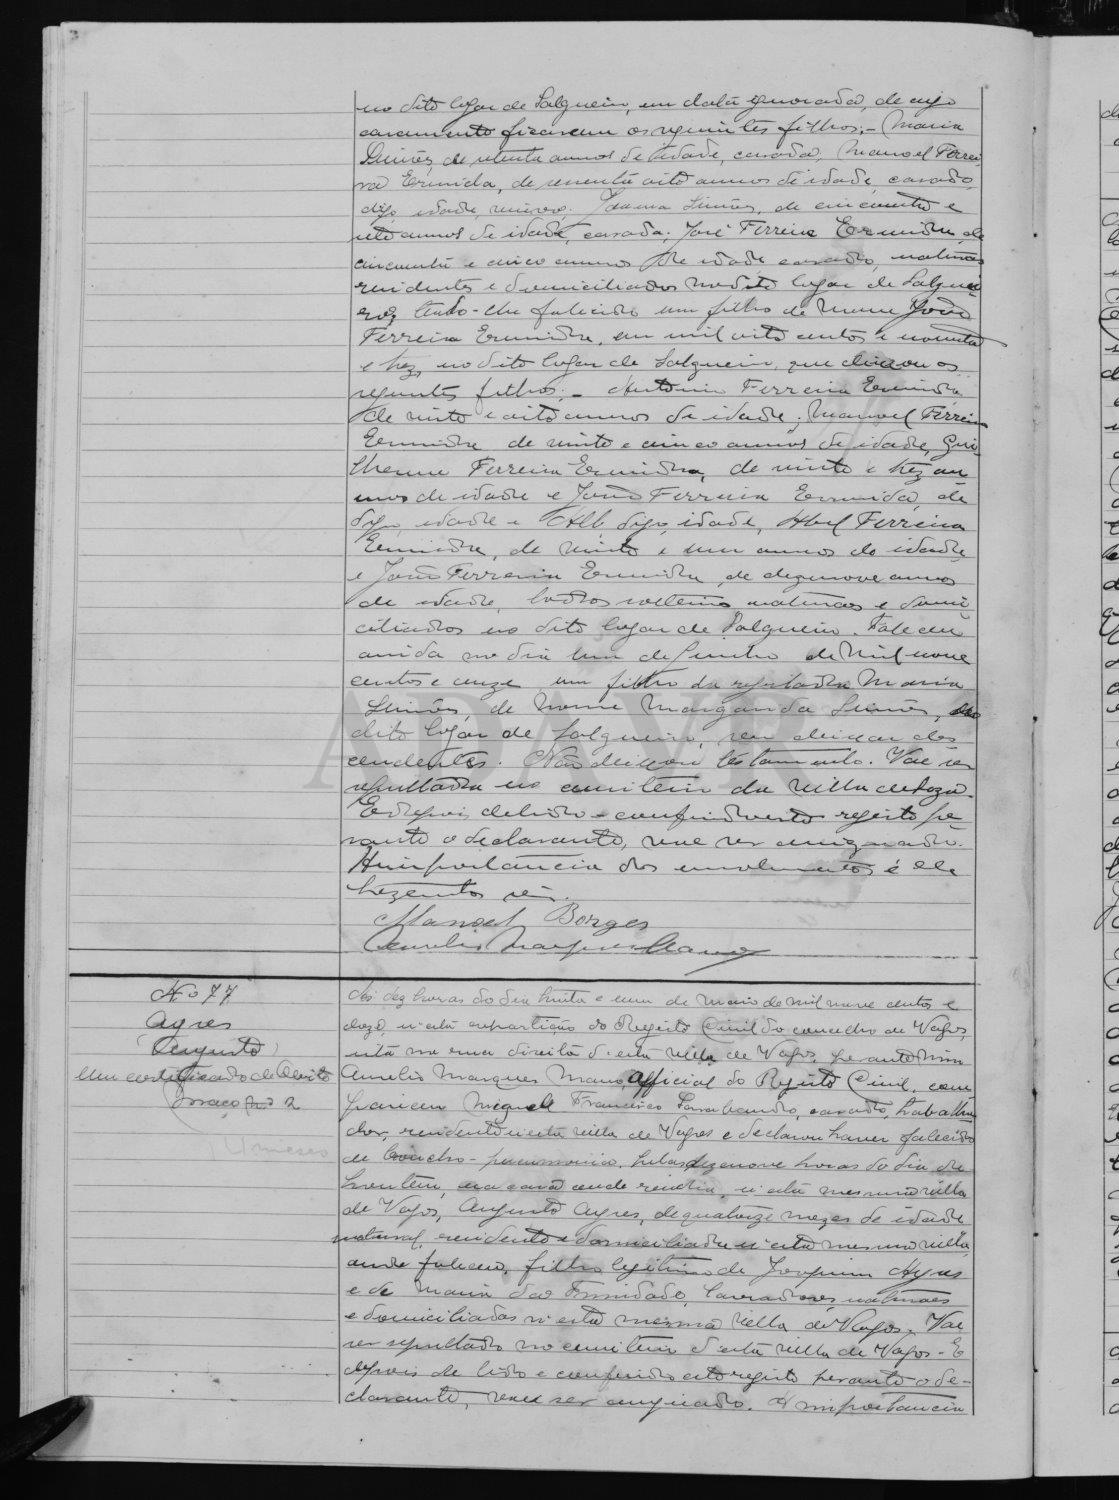 no dito logar de Salgueiro, em data ignorada, de cujo
casamento ficaram os seguintes filhos: - Maria
Simões, de setenta annos de idade, casada, Manoel Ferrei-
ra Ermida, de sessenta oito annos de idade, casado,
digo, idade, viuvo; Joanna Simões, de cincoenta e
oito annos de idade, casada; José Ferreira Ermida, de
cincoenta e cinco annos de idade casado, naturaes
residentes e domiciliados no dito logar de Salguei-
ro; tendo-lhe falecido um filho de nome João
Ferreira Ermida, em mil oito centos e noventa
e trez, no dito logar de Salgueiro, que deixou os
seguintes filhos: - Antonio Ferreira Ermida,
de vinte e oito annos de idade; Manoel Ferreira
Ermida de vinte e cinco annos de idade, Gui-
lherme Ferreira Ermida, de vinte e trez an-
nos de idade e João Ferreira Ermida, de
digo, idade e Alb, digo, idade, Abel Ferreira
Ermida, de vinte e um annos de idade
e João Ferreira Ermida, de dezenove annos
de idade, todos solteiros naturaes e domi-
ciliados no dito logar de Salgueiro. Faleceu
ainda no dia um de Junho de mil nove
centos e onze um filho da registada Maria
Simões, de nome Margarida Simões, no
dito logar de Salgueiro, sem deixar des-
cendentes. Não deixou testamento. Vae ser
sepultada no cemiterio da villa de Soza.
E depois de lido e conferido este registo pe-
rante o declarante, vae ser assignado.
A importancia dos emolumentos é de
trezentos réis.
Manoel Borges
Aurelio Marques Mano
Nº 77
Ayres
(Augusto)
Um certificado de obito
Maço nº 2
Ás dez horas do dia trinta e um de Maio de mil nove centos e
doze, n'esta repartição do Registo Civil do concelho de Vagos,
sita na rua direita d'esta villa de Vagos, perante mim
Aurelio Marques Mano, Official do Registo Civil, com-
pareceu Miguel Francisco Sarabando, casado, trabalha-
dor, residente n'esta villa de Vagos e declarou haver falecido
de broncho-pneumonia, pelas dezenove horas do dia de
hontem, na casa onde residia, n'esta mesma villa
de Vagos, Augusto Ayres, de quatorze mezes de idade
natural, residente e domiciliado n'esta mesma villa,
onde faleceu, filho legitimo de Joaquim Ayres
e de Maria da Trindade, lavradores, naturaes
e domiciliados n'esta mesma villa de Vagos. Vae
ser sepultado no cemiterio d'esta villa de Vagos - E
depois de lido e conferido este registo perante o de-
clarante, vae ser assignado. A importancia
ADAVR